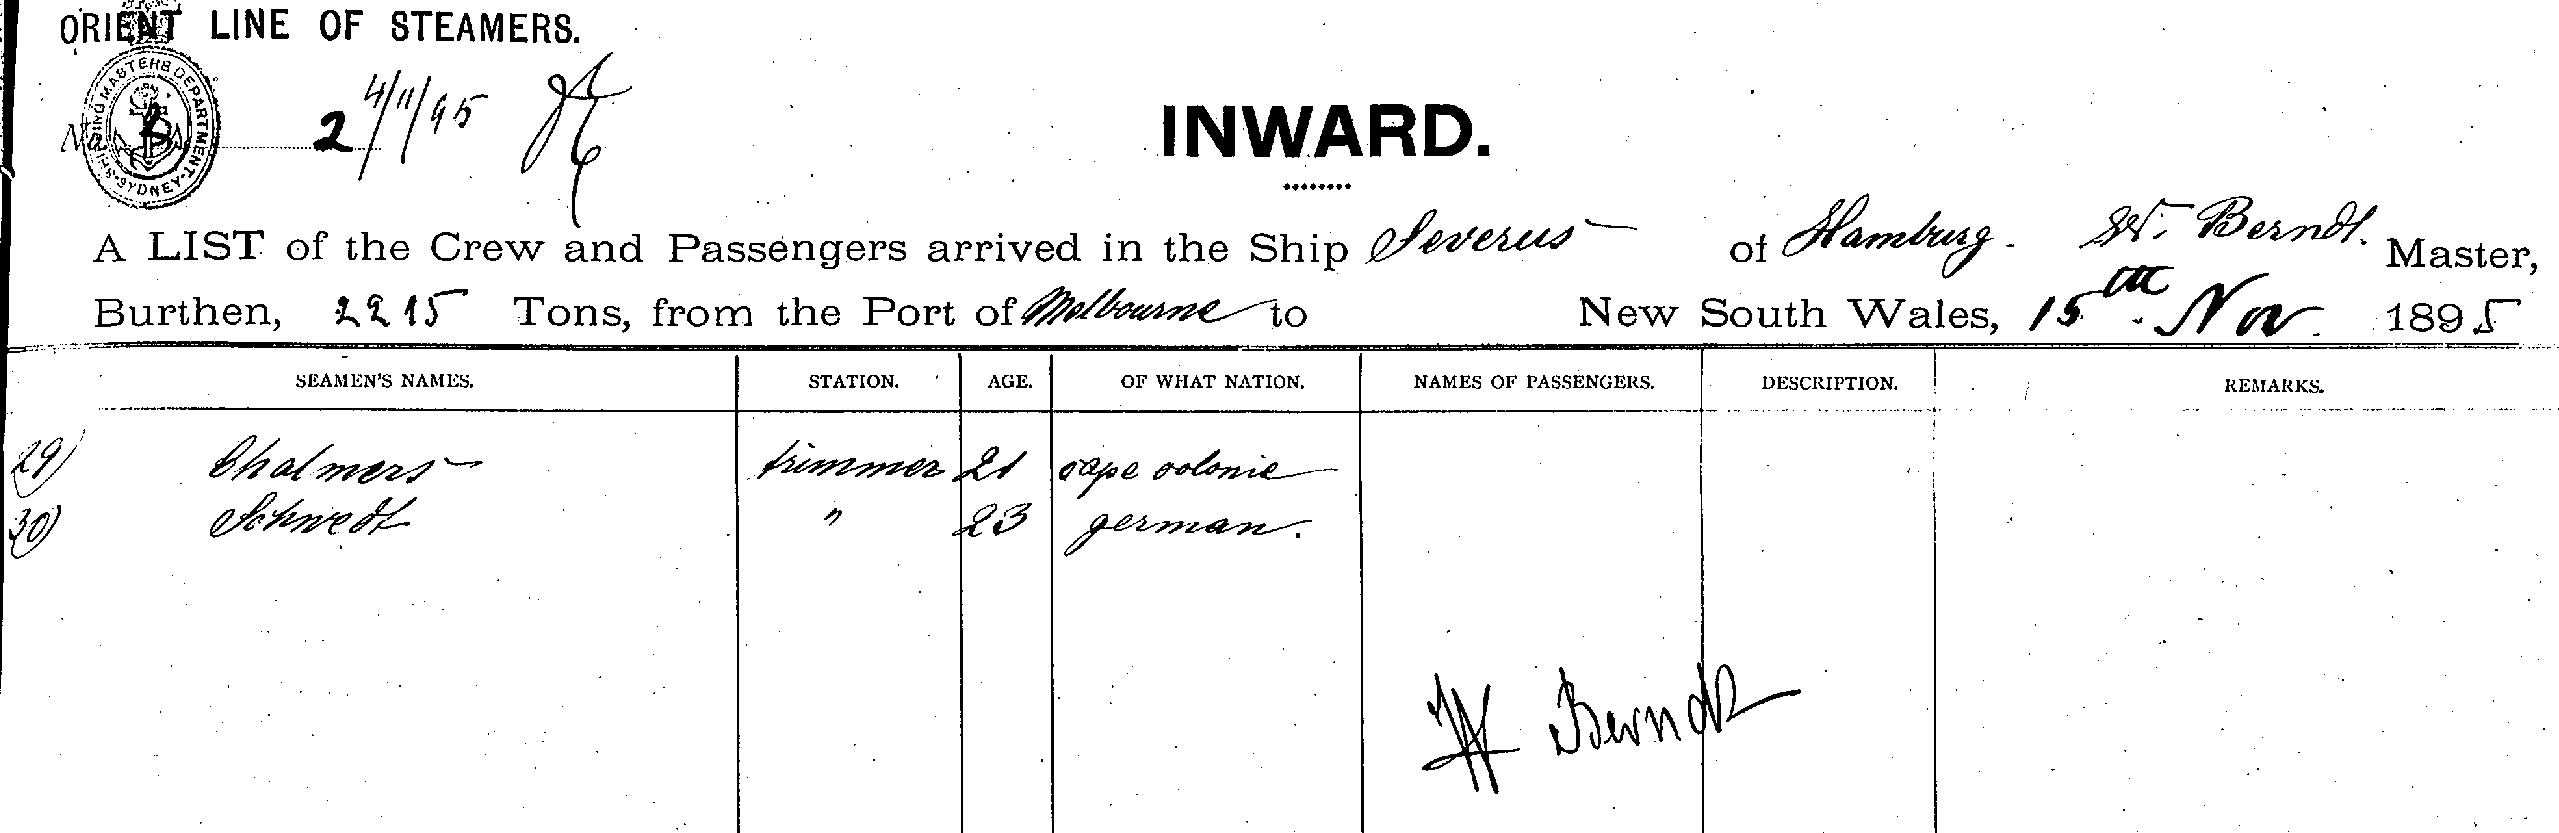 ORIENT LINE OF STEAMERS.
SHIPPING MASTERS DEPARTMENT. SYDNEY.
No 2 4/11/95
INWARD.
A LIST of the Crew and Passengers arrived in the Ship Severus of Hamburg. W. Berndt. Master,
Burthen, 2215 Tons, from the Port of Melbourne to New South Wales, 15th Nov. 1895
SEAMEN'S NAMES. STATION. AGE. OF WHAT NATION. NAMES OF PASSENGERS. DESCRIPTION. REMARKS.
29) Chalmers trimmer 21 cape colonie
30) Schwedt " 23 german.
W Berndt